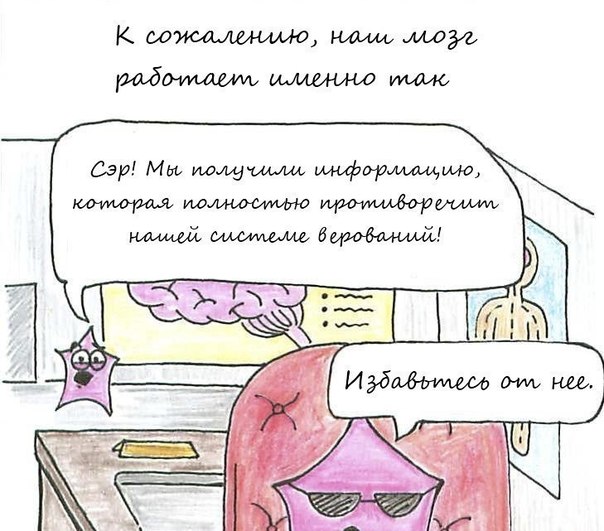 К сожалению, наш мозг
работает именно так
Сэр! Мы получили информацию,
которая полностью противоречит
нашей системе верований!
Избавьтесь от нее.